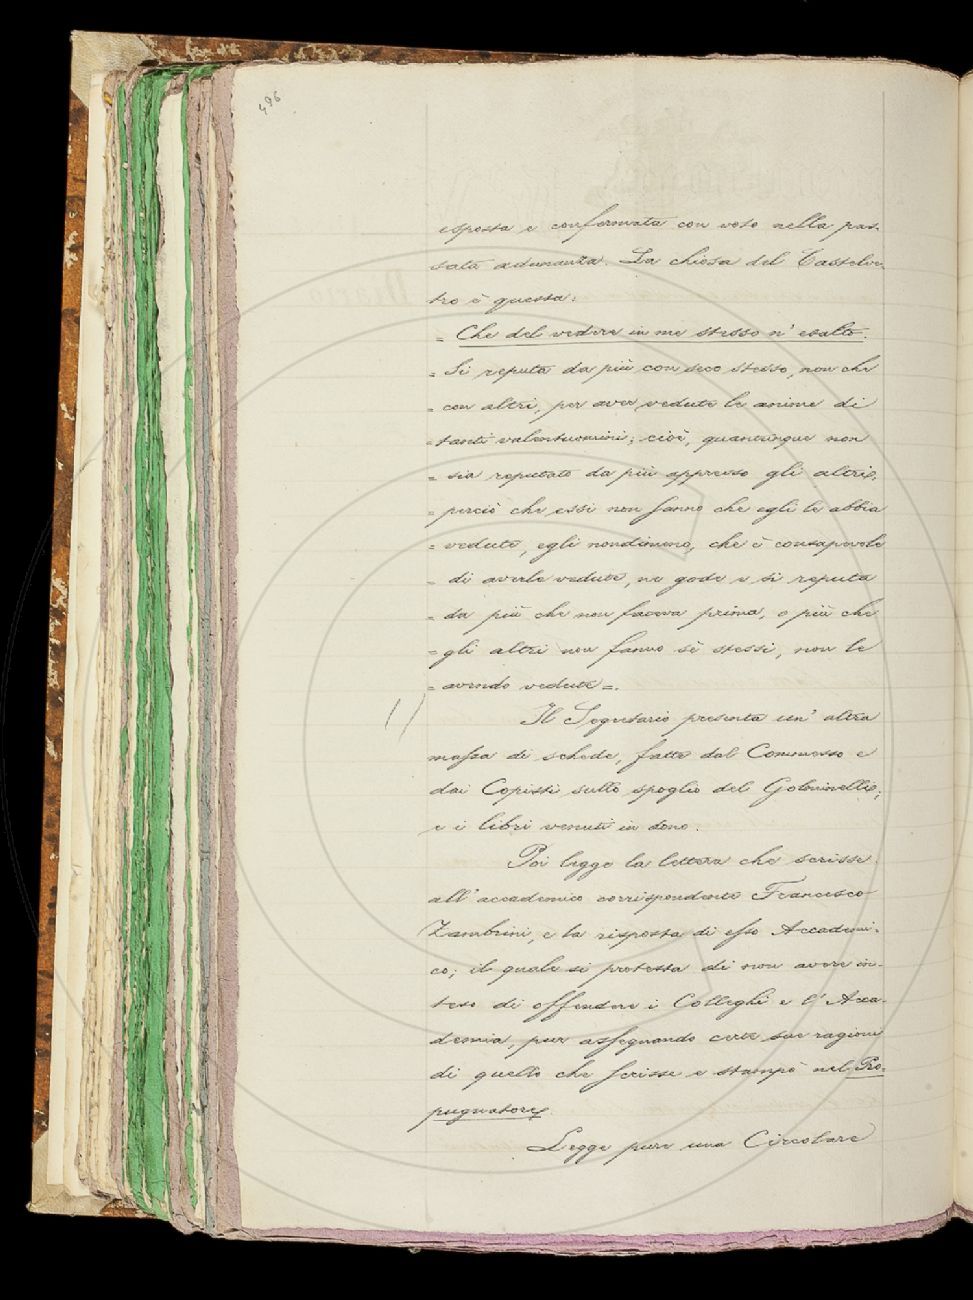 496
esposta e confermata con voto nella pas-
sata adunanza. La chiosa del Castelve-
tro è questa:
= Che del vedere in me stesso n' esalto.
= Si reputa da più con seco stesso, non che
= con altri, per aver vedute le anime di
= tanti valentuomini; cioè, quantunque non
= sia reputato da più appresso gli altri,
= perciò che essi non sanno che egli le abbia
= vedute, egli nondimeno, che è consapevole
= di averle vedute, ne gode e si reputa
= da più che non faceva prima, o più che
= gli altri non fanno sè stessi, non le
= avendo vedute =.
Il Segretario presenta un' altra
massa di schede, fatte dal Commesso e
dai Copisti sullo spoglio del Golunelli;
e i libri venuti in dono.
Poi legge la lettera che scrisse
all' accademico corrispondente Francesco
Zambrini, e la risposta di esso Accademi-
co; il quale si protesta di non avere in-
teso di offendere i Colleghi e l' Acca-
demia, pur assegnando certe sue ragioni
di quello che scrisse e stampò nel Pro-
pugnatore.
Legge pure una Circolare